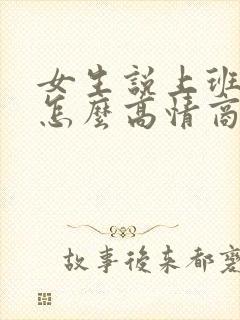 女生説上班
怎麼高情商
故事後来都